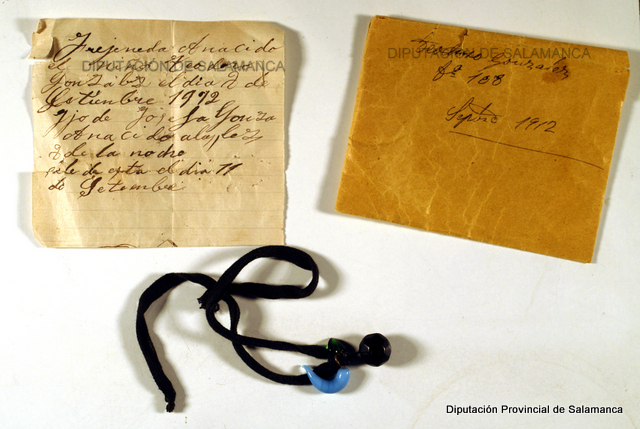 Frejeneda A nacido
el
Gonzalez el dia 2 de
Setiembre 1912
Ijo de Josefa Gonza
A nacido a las
de la noche
sale de esta el dia 11
de Setembre
DIPUTACIÓN DE SALAMANCA
Gonzalez
fº 108
Sepbre 1912
DIPUTACIÓN DE SALAMANCA
Diputación Provincial de Salamanca